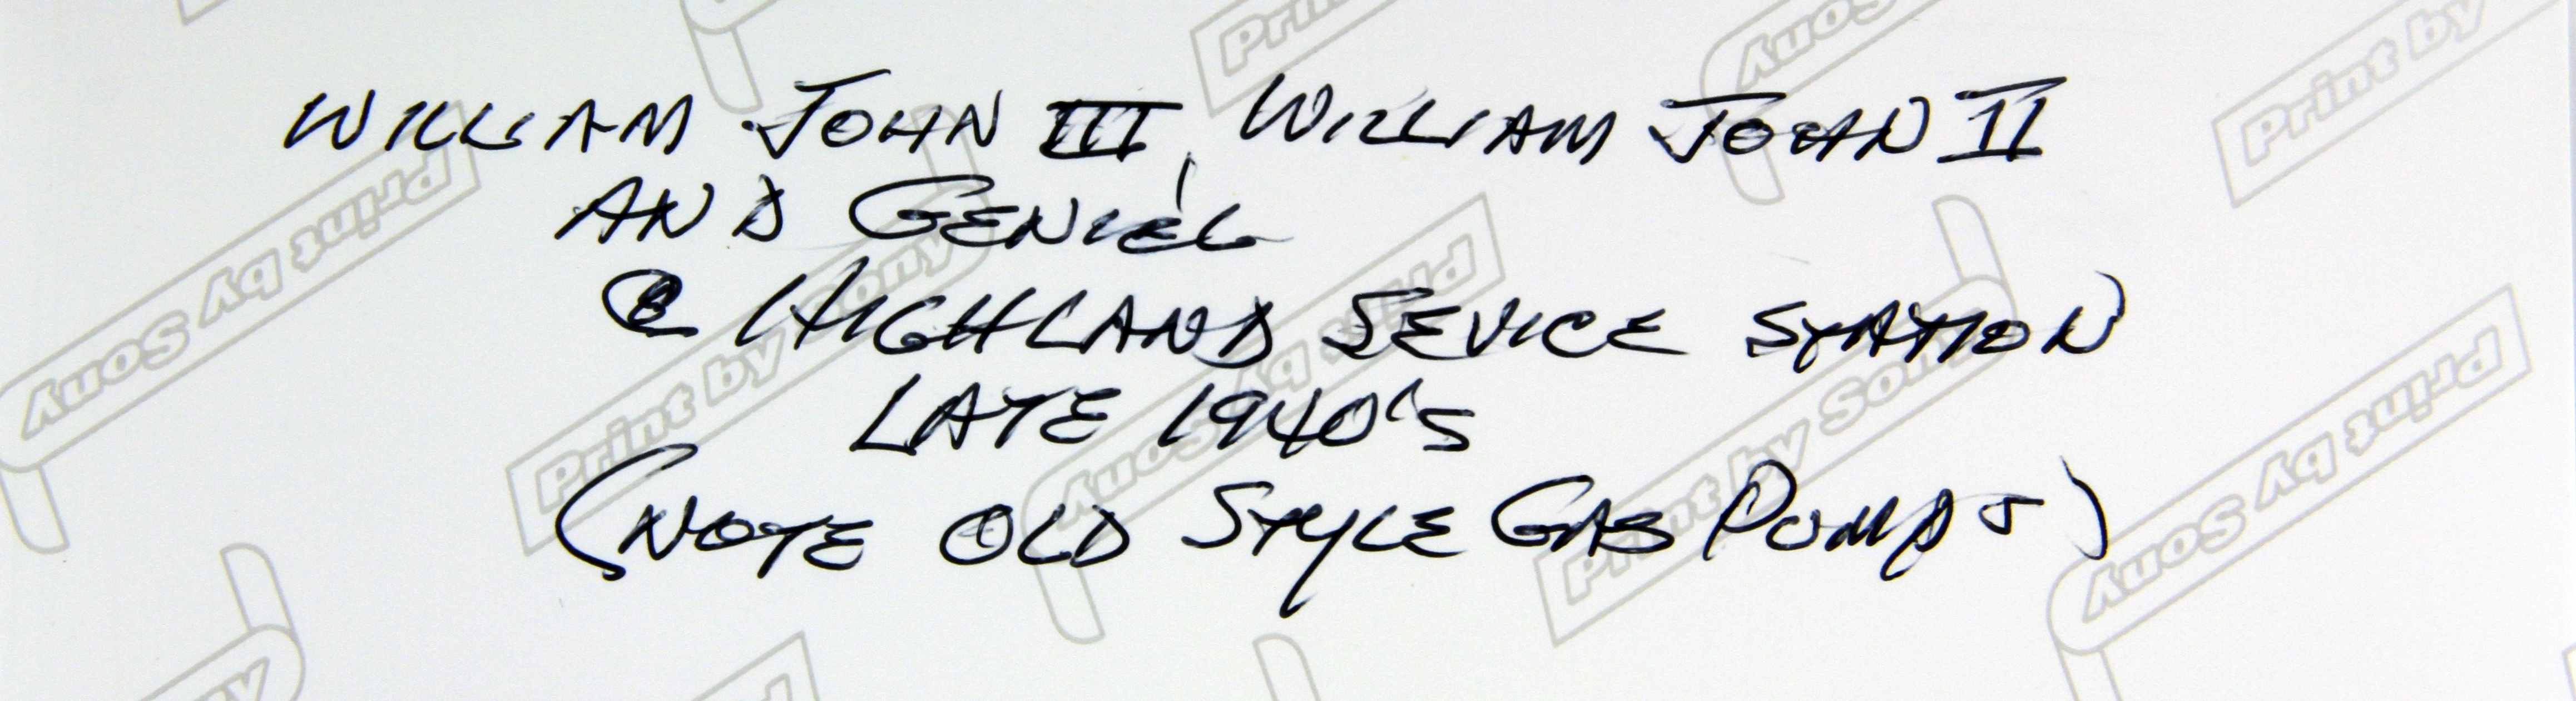 WILLIAM JOHN III, WILLIAM JOHN II
AND GENIEL
@ HIGHLAND SEVICE STATION
LATE 1940's
(NOTE OLD STYLE GAS PUMPS)
Print by Sony
Print by Sony
Print by Sony
Print by Sony
Print by Sony